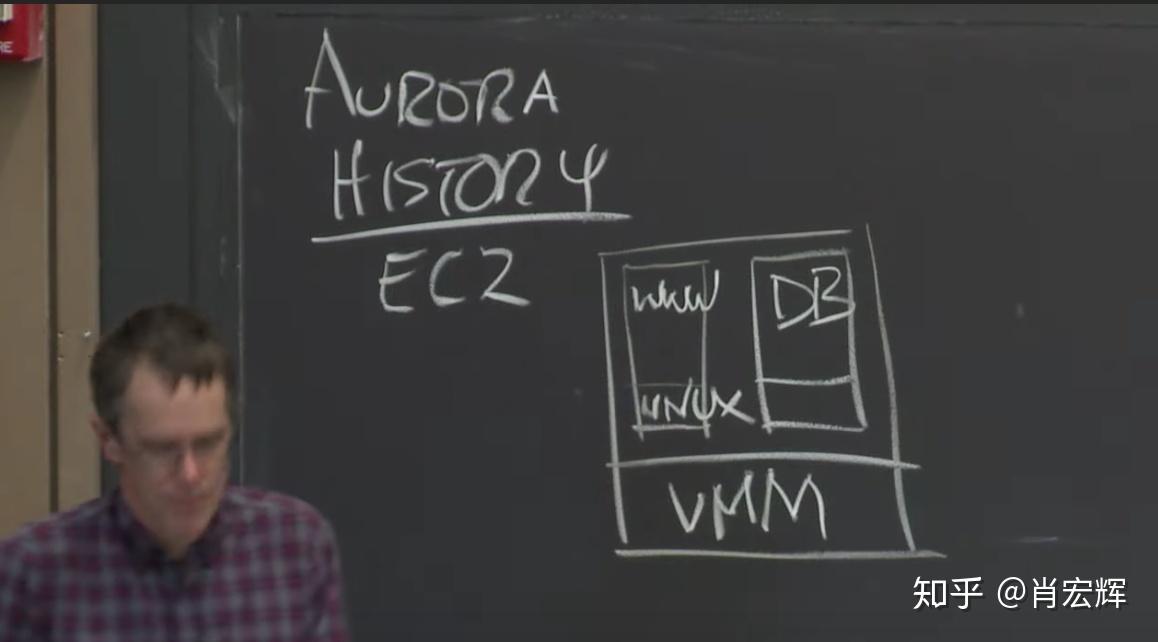 RE
AURORA
HISTORY
EC2
WWW
DB
LINUX
VMM
知乎 @肖宏辉